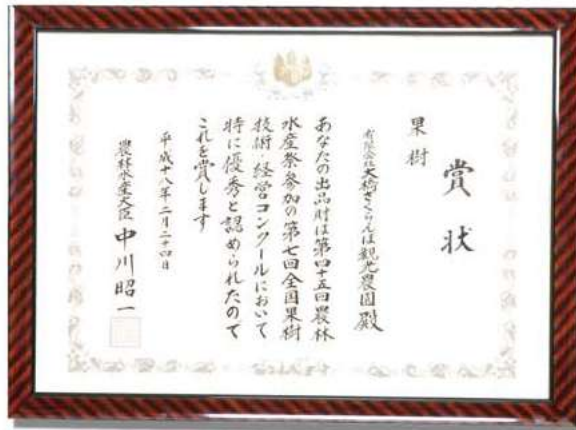 賞状
果樹
有限会社大橋さくらんぼ観光農園殿
あなたの出品財は第四十五回農林
水産祭参加の第七回全国果樹
技術・経営コンクールにおいて
特に優秀と認められたので
これを賞します
平成十八年二月二十四日
農林水産大臣 中川昭一